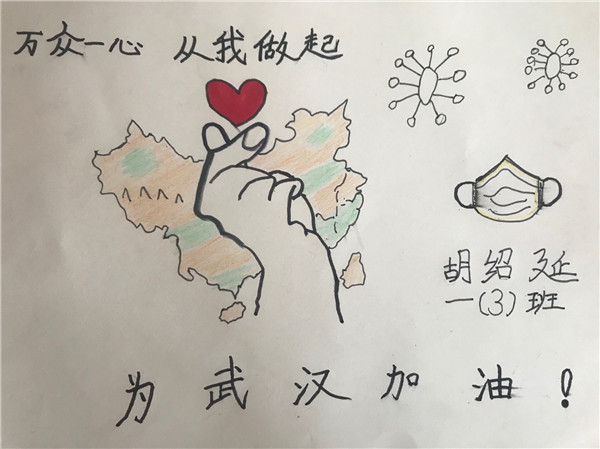 万众一心 从我做起
胡绍延
一(3)班
为武汉加油!